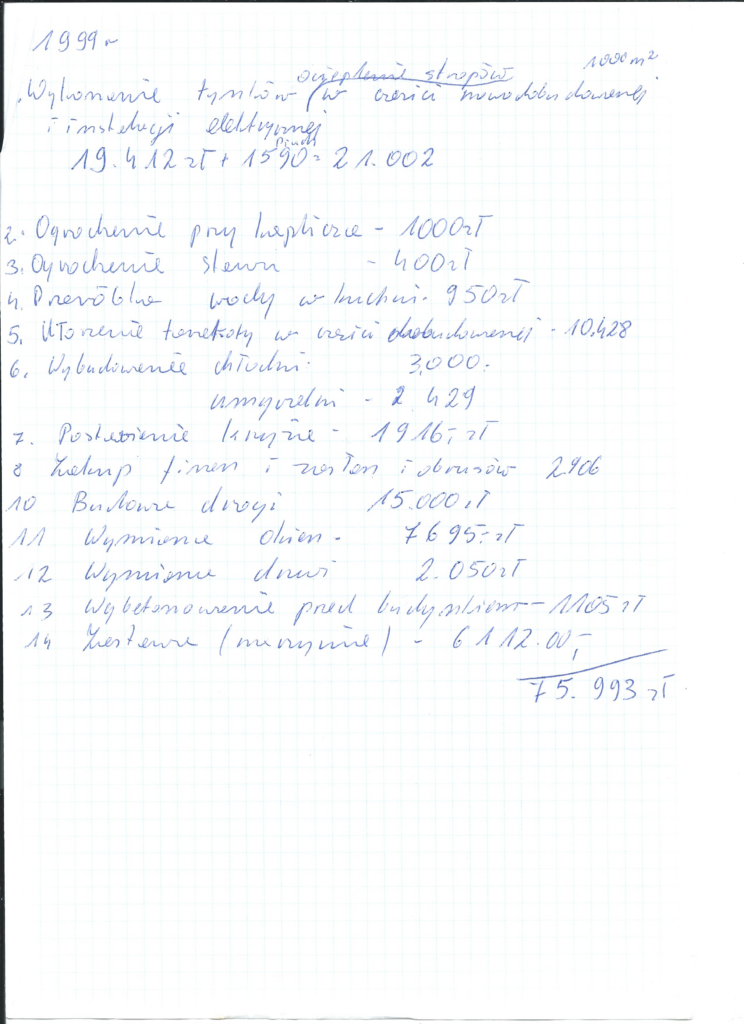 1999r
ocieplenie stropów 1000 m²
Wykonanie tynków (w cześci nowodobudowanej
i instalacji elektrycznej
19.412 zł + 1590 = 21.002
2. Ogrodzenie przy kapliczce - 1000 zł
3. Ogrodzenie stawu - 400 zł
4. Przeróbka wody w kuchni - 950 zł
5. Ułożenie terakoty w cześci dobudowanej - 10.428
6. Wybudowanie chłodni 3,000.
umywalni - 2 429
7. Postawienie krzyża - 1916,- zł
8 Zakup firan i zasłon i obrusów 2.906
10 Budowa drogi 15.000 zł
11 Wymiana okien - 7695,- zł
12 Wymiana drzwi 2.050 zł
13 Wybetonowanie przed budynkiem - 1105 zł
14 Zastawa (naczynie) - 6112.00,-
75.993 zł